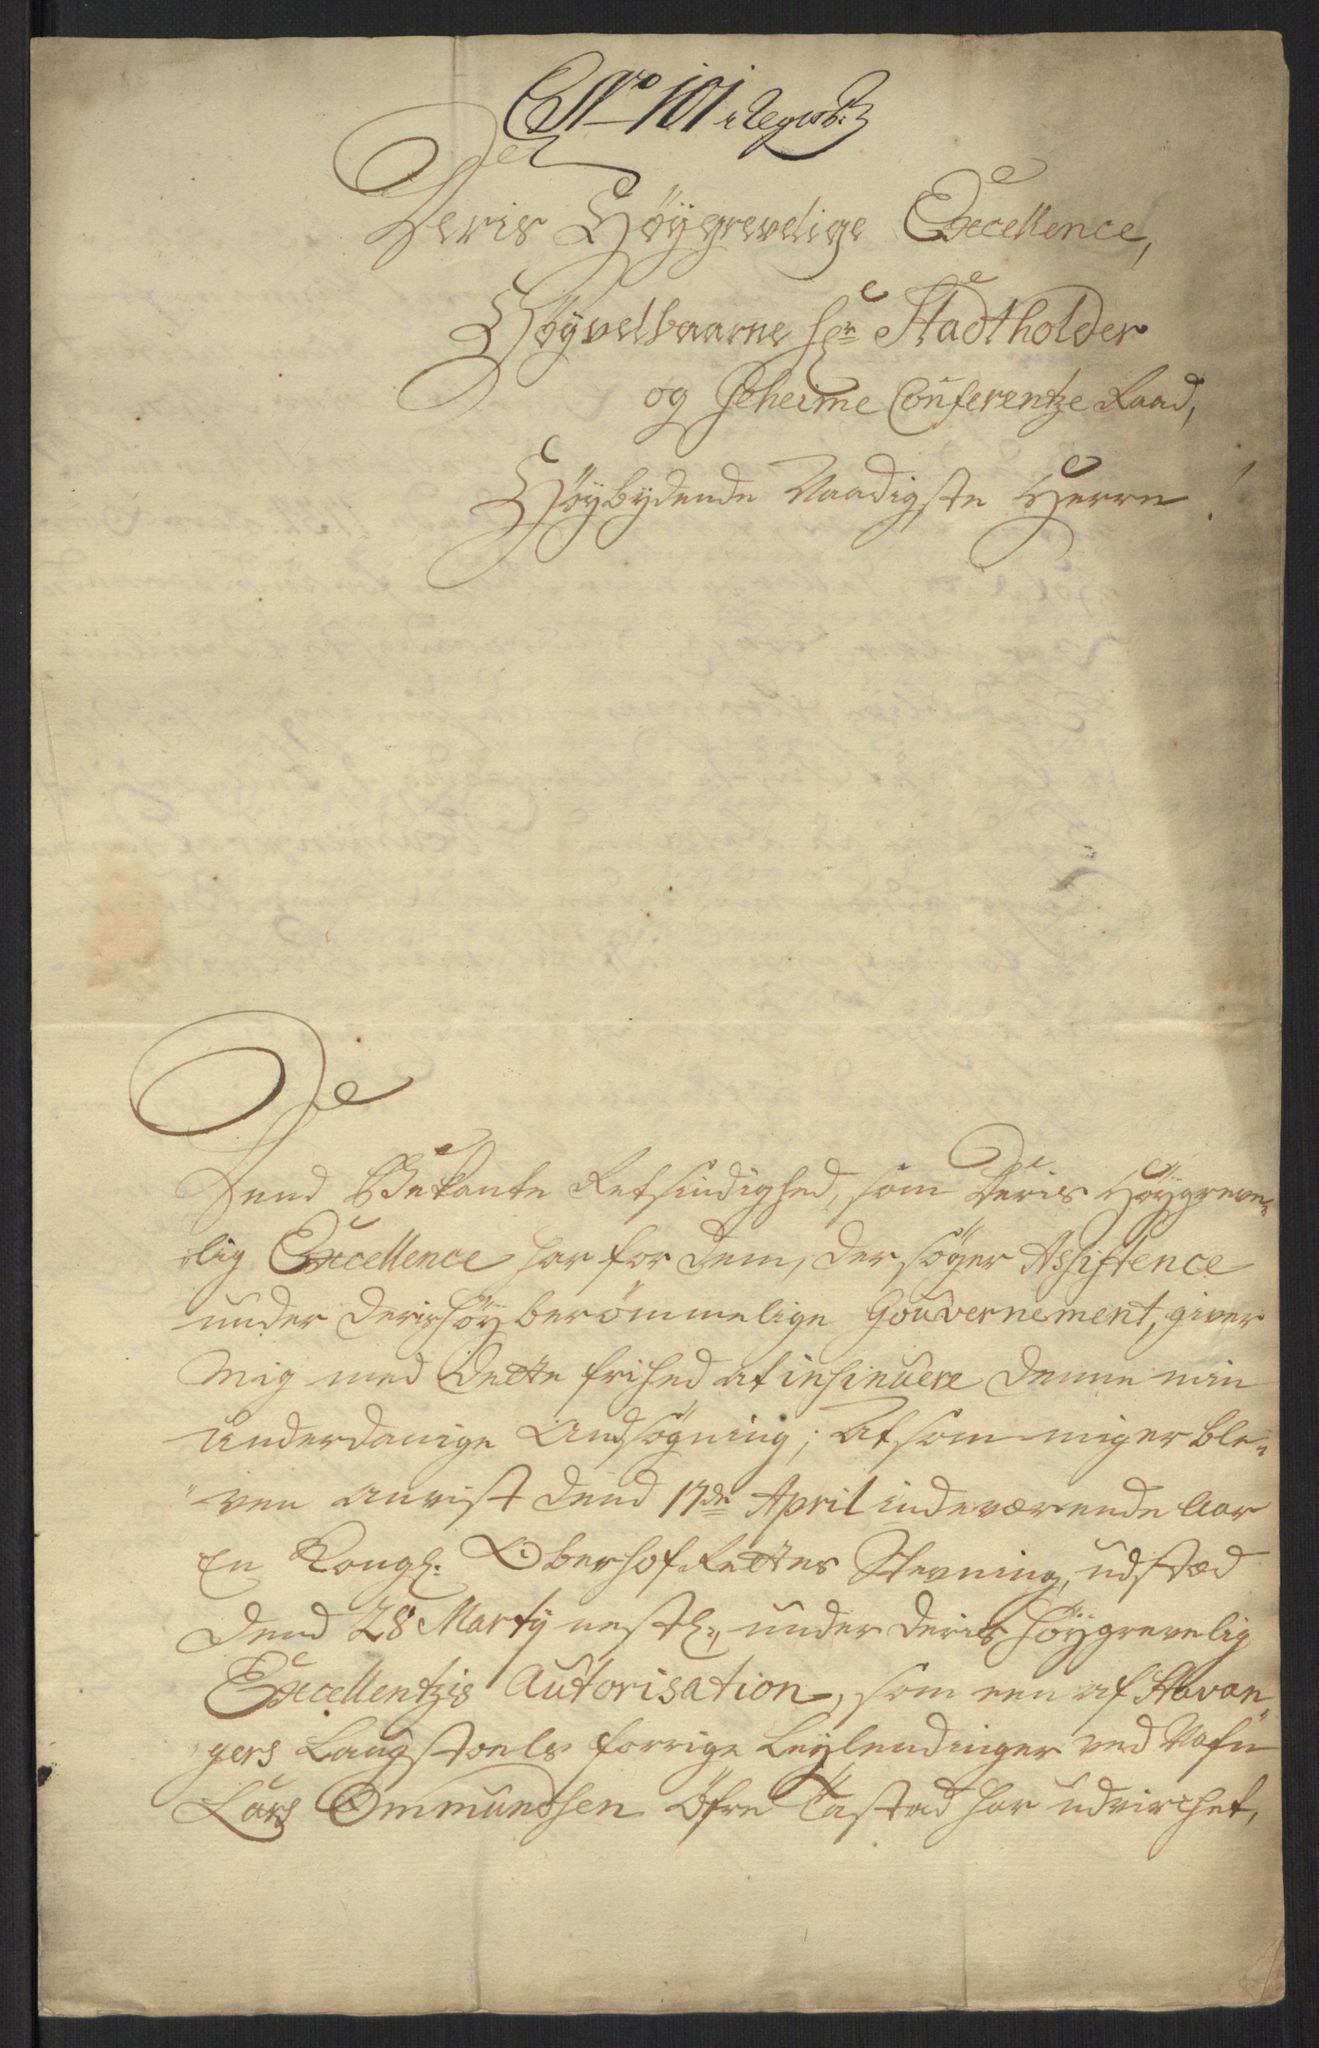 No 101 i Regist:
Deris Høygrevelige Excellence,
Høyvelbaarne Hr Stadtholder
og Geheime Conferentze Raad,
Høybydende Naadigste Herre!
Dend Bekante Retsindighed, som Deris Høygreve-
lig Excellence har for dem, der søger Assistence
under deris høyberømmelige Gouvernement, giver
Mig med Dette frihed at insinuere denne min
underdanige Andsøgning; At som mig er ble-
ven anvist dend 17de April indeværende Aar
En Kongl: OberhofRettes Stevning, udstæd
dend 28 Martij nestl:, under deris høygrevelig
Excellentzis Autorisation, som een af Stavan-
gers Laugstoels forrige Leylendinger ved Nafn
Lars Ommundsen Øfre Tastad har udvirchet,